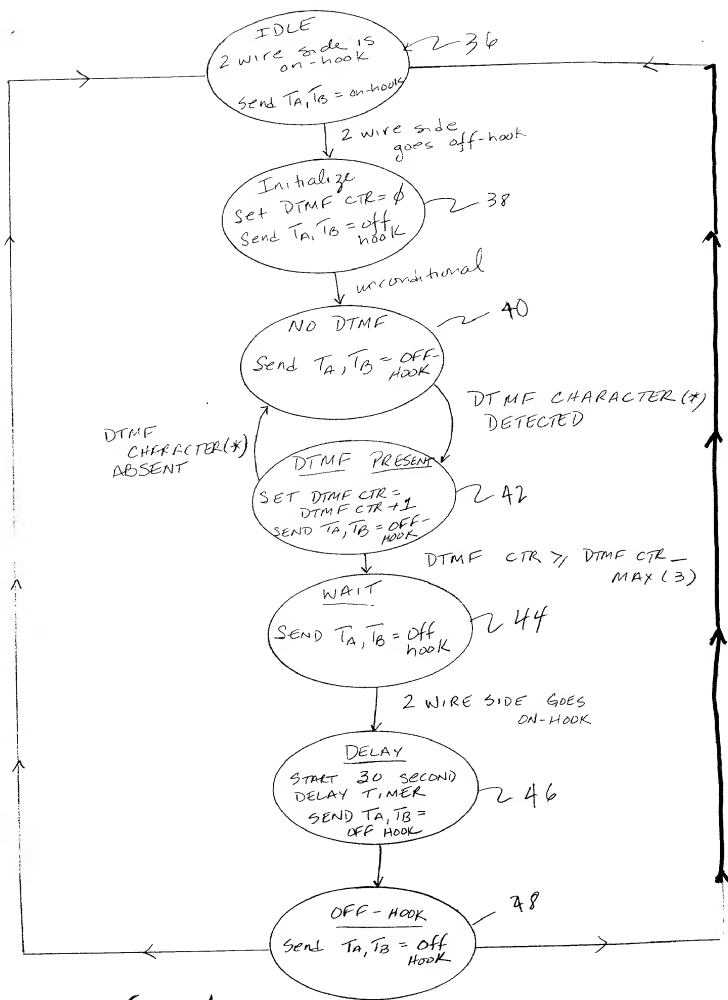 IDLE
2 wire side is
on-hook
Send TA, TB = on-hook
36
2 wire side
goes off-hook
Initialize
Set DTMF CTR = ϕ
Send TA, TB = off
hook
38
unconditional
NO DTMF
Send TA, TB = OFF-
HOOK
40
DTMF CHARACTER (*)
DETECTED
DTMF
CHARACTER(*)
ABSENT
DTMF PRESENT
SET DTMF CTR =
DTMF CTR + 1
SEND TA, TB = OFF-
HOOK
42
DTMF CTR ≥ DTMF CTR_
MAX (3)
WAIT
SEND TA, TB = Off
hook
44
2 WIRE SIDE GOES
ON-HOOK
DELAY
START 30 SECOND
DELAY TIMER
SEND TA, TB =
OFF HOOK
46
OFF-HOOK
Send TA, TB = Off
HOOK
48